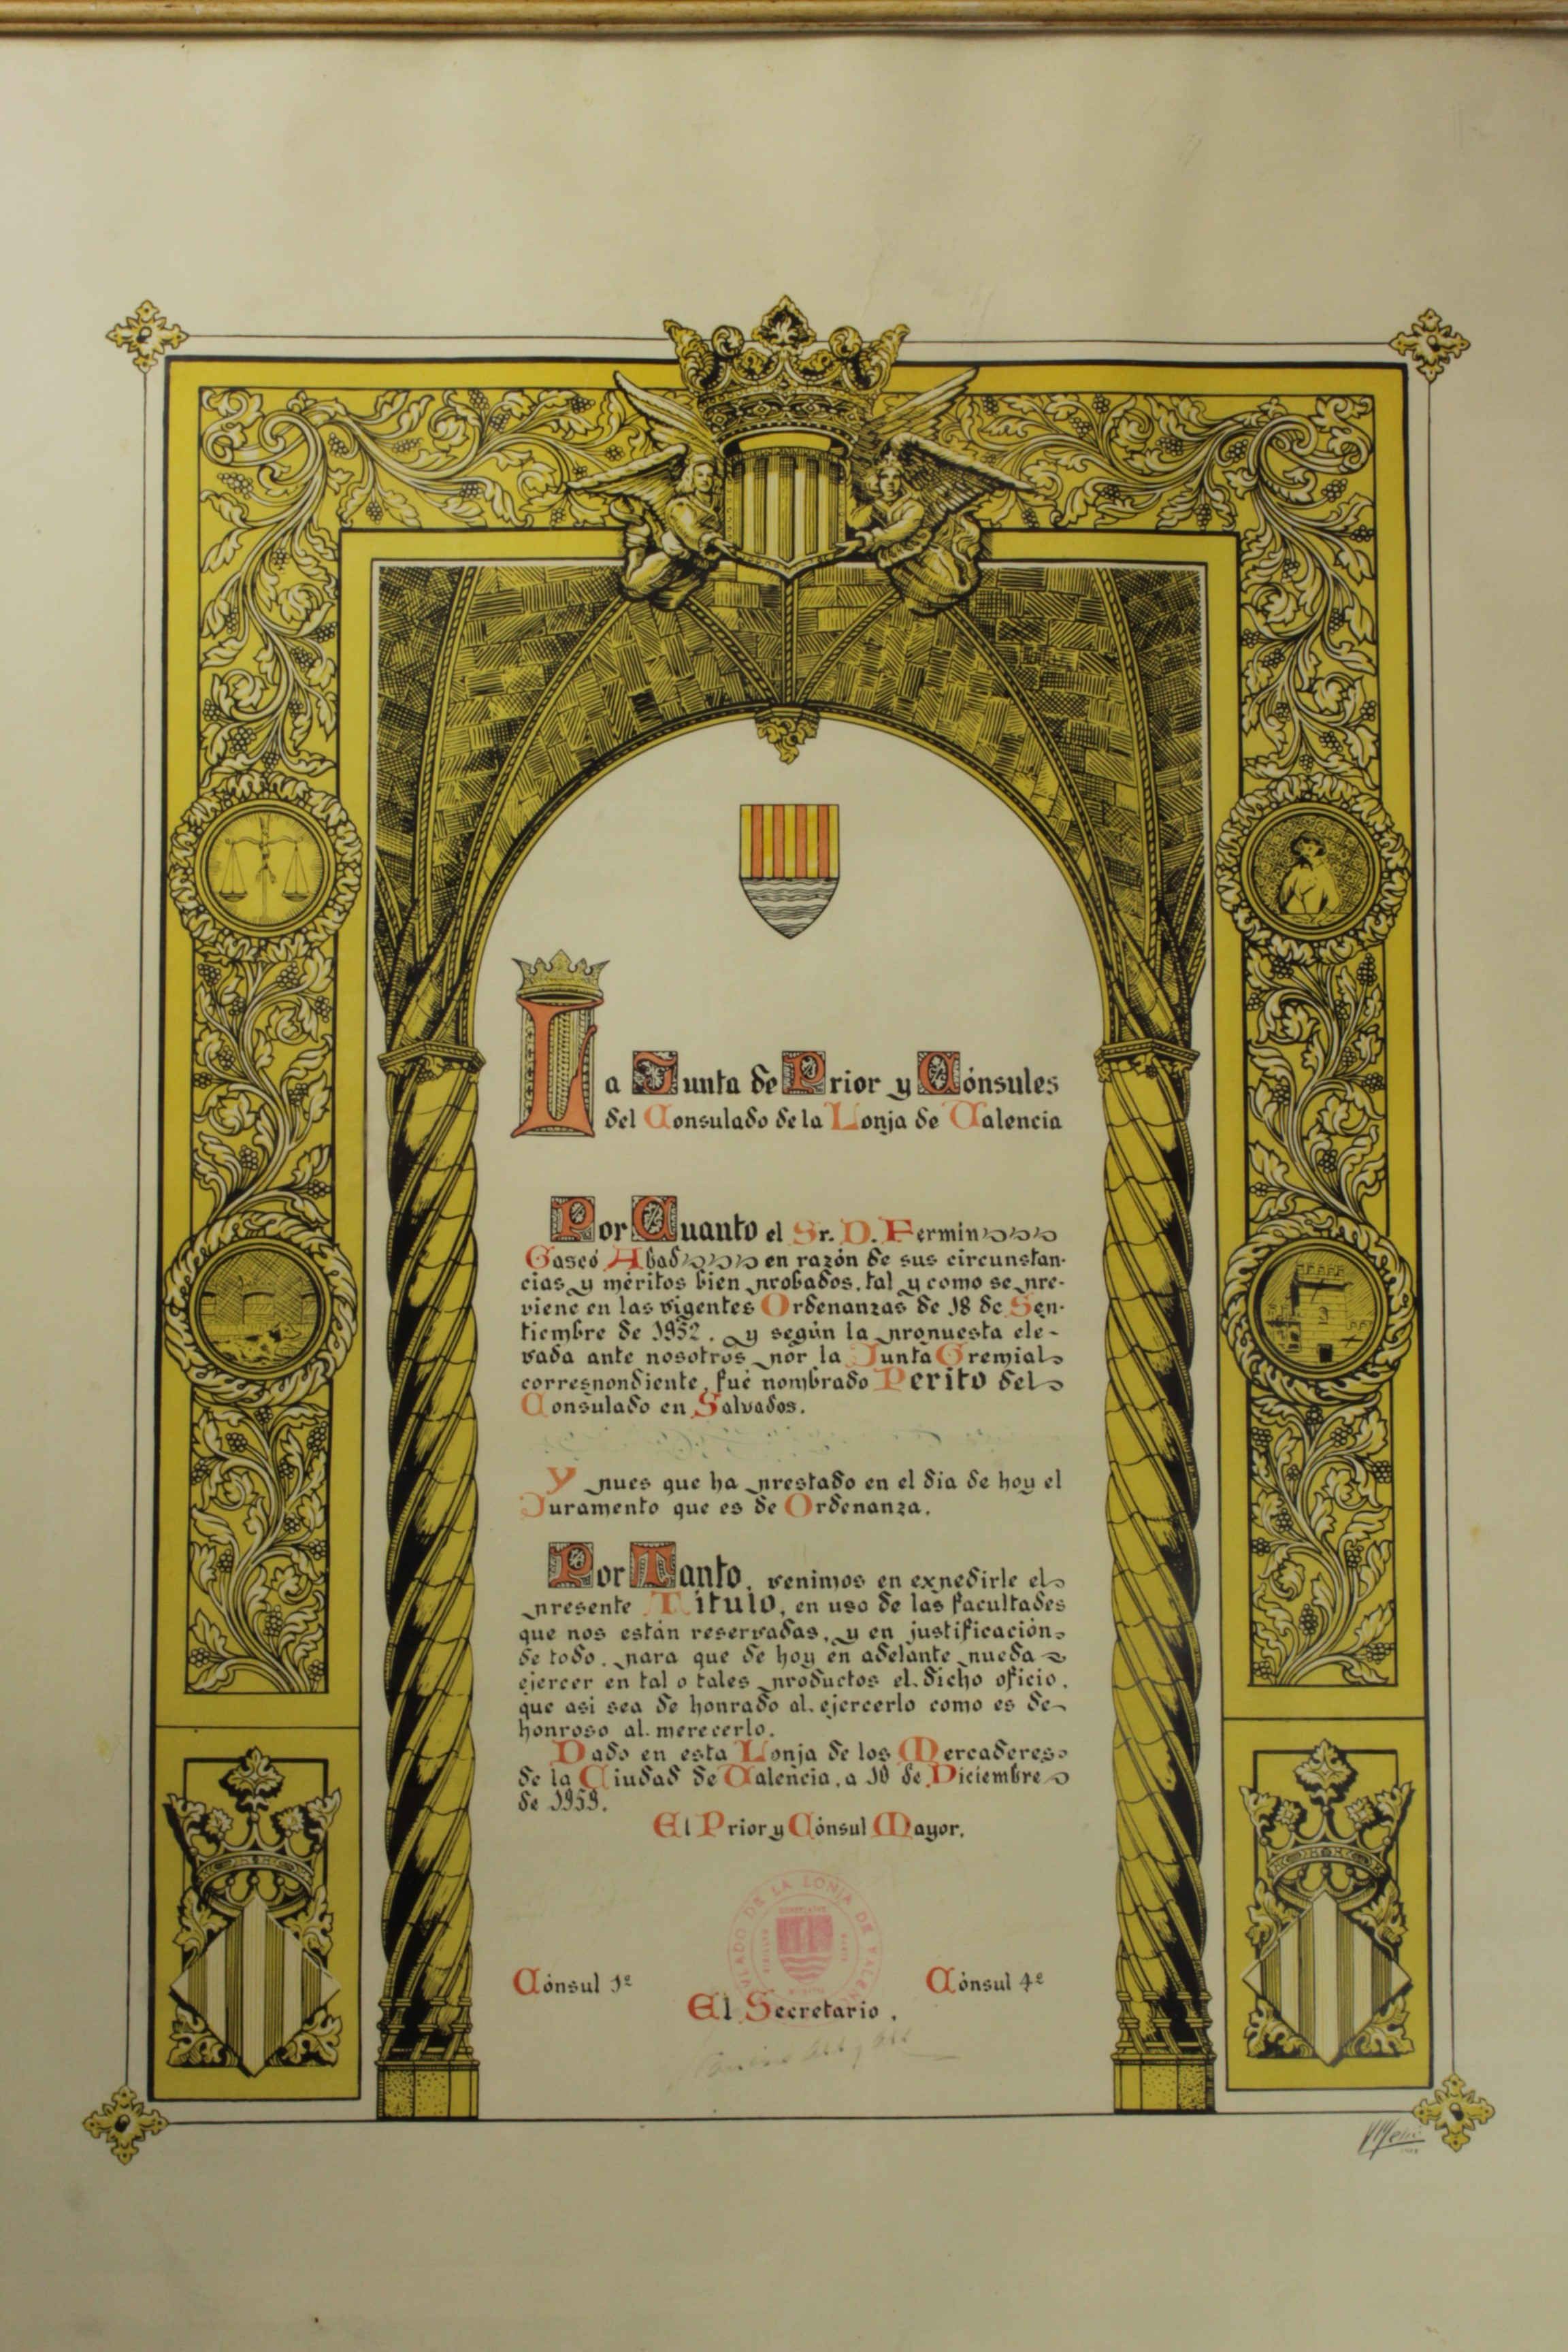 La Junta de Prior y Cónsules
del Consulado de la Lonja de Valencia
Por Cuanto el Sr. D. Fermín
Gascó Abad en razón de sus circunstan-
cias y méritos bien probados, tal y como se pre-
viene en las vigentes Ordenanzas de 18 de Sep-
tiembre de 1952, y según la propuesta ele-
vada ante nosotros por la Junta Gremial
correspondiente, fué nombrado Perito del
Consulado en Salvados.
Y pues que ha prestado en el dia de hoy el
Juramento que es de Ordenanza.
Por Tanto, venimos en expedirle el
presente Título, en uso de las facultades
que nos están reservadas, y en justificación
de todo, para que de hoy en adelante pueda
ejercer en tal o tales productos el dicho oficio,
que asi sea de honrado al ejercerlo como es de
honroso al merecerlo.
Dado en esta Lonja de los Mercaderes
de la Ciudad de Valencia, a 10 de Diciembre
de 1959.
El Prior y Cónsul Mayor,
CONSULADO DE LA LONJA DE VALENCIA
Cónsul 1º
Cónsul 4º
El Secretario,